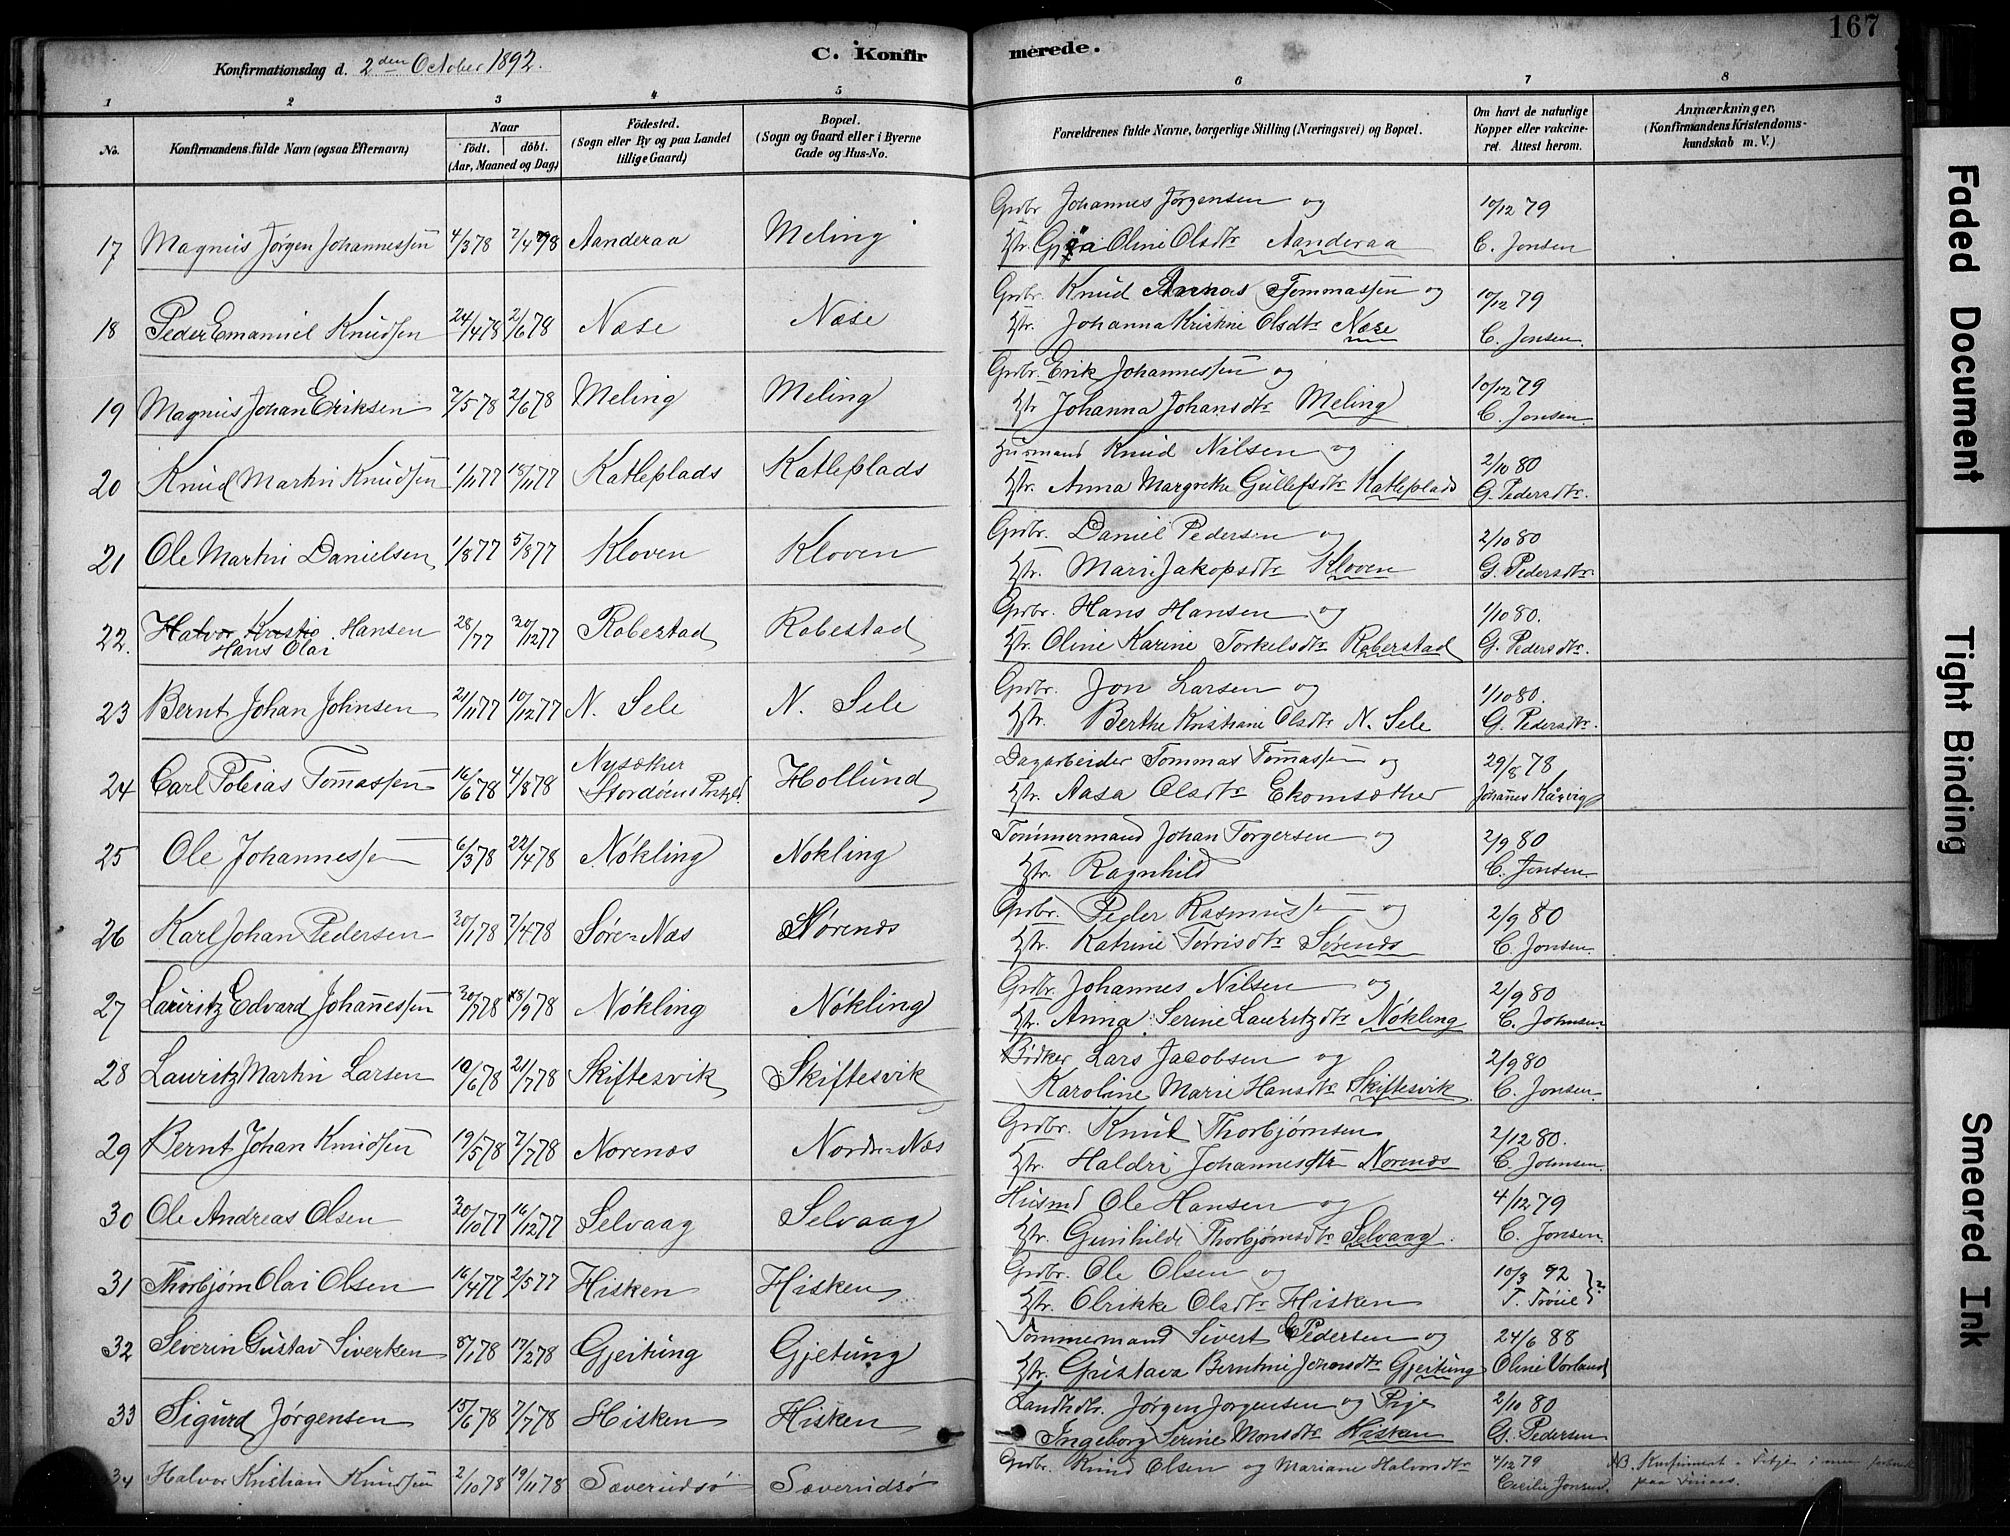 167
Konfirmationsdag d. 2den October 1892.
C. Konfirmerede.
1 2 3 4 5 6 7 8
No.
Konfirmandens fulde Navn (ogsaa Efternavn)
Naar
födt. döbt.
(Aar, Maaned og Dag)
Födested.
(Sogn eller By og paa Landet
tillige Gaard)
Bopæl.
(Sogn og Gaard eller i Byerne
Gade og Hus-No.
Forældrenes fulde Navne, borgerlige Stilling (Næringsvei) og Bopæl.
Om havt de naturlige
Kopper eller vakcine-
ret. Attest herom.
Anmærkninger,
(Konfirmandens Kristendoms-
kundskab m. V.)
17 Magnus Jörgen Johannessen 4/3 78 7/4 78 Aanderaa Meling
Grdbr. Johannes Jörgensen og 10/12 79
Hstr. Oline Olsdtr Aanderaa C. Jonsen
18 Peder Emanuel Knudsen 24/4 78 2/6 78 Næse Næse
Grdbr. Knud Tommassen og 10/12 79
Hstr. Johanna Kristine Olsdtr Næse C. Jonsen.
19 Magnus Johan Eriksen 7/5 78 2/6 78 Meling Meling
Grdbr. Erik Johannessen og 10/12 79
Hstr Johanna Johansdtr Meling C. Jonsen.
20 Knud Martin Knudsen 1/11 77 18/11 77 Katleplads Katleplads
Husmand Knud Nilsen og 2/10 80
Hstr. Anna Margrethe Gullefsdtr Katleplads G. Pedersdtr.
21 Ole Martin Danielsen 1/8 77 5/8 77 Kloven Kloven
Grdbr. Daniel Pedersen og 2/10 80
Hstr. Mari Jakopsdtr Kloven G. Pedersdtr.
22. Halvor Kristio Hansen 28/ 77 30/12 77 Robestad Robestad
Hans Olai
Grdbr. Hans Hansen og 1/10 80.
Hstr Oline Karine Torkelsdtr Roberstad G. Pedersdtr.
23 Bernt Johan Johnsen 21/11 77 10/12 77 N. Sele N. Sele
Grdbr. Jon Larsen og 1/10 80.
Hstr. Berthe Kristiane Olsdtr N. Sele G. Pedersdtr.
24 Carl Tobias Tomassen 16/6 78 4/8 78 Nysæther Hollund
Stordöens Prstgld.
Dagarbeider Tommas Tomassen og 29/8 78
Hstr. Aasa Olsdtr Ekomsæther Johannes Kårvig
25 Ole Johannessen 6/3 78 22/4 78 Nökling Nökling
Tömmermand Johan Torgersen og 2/9 80
Hstr. Ragnhild C. Jonsen.
26 Karl Johan Pedersen 30/1 78 7/4 78 Söre-Næs Nörenæs
Grdbr. Peder Rasmussen og 2/9 80
Hstr. Katrine Törrisdtr Sörenæs C. Jonsen.
27 Lauritz Edvard Johannessen 30/7 78 18/9 78 Nökling Nökling
Grdbr. Johannes Nilsen og 2/9 80
Hstr. Anna Serine Lauritzdtr Nökling C. Johnsen
28 Lauritz Martin Larsen 10/6 78 21/7 78 Skiftesvik Skiftesvik
Bödker Lars Jacobsen og 2/9 80
Karoline Marie Hansdtr Skiftesvik C. Jonsen.
29 Bernt Johan Knudsen 19/5 78 7/7 78 Norenæs Nordre-Næs
Grdbr. Knud Thorbjörnsen 2/12 80.
Hstr. Haldri Johannesdtr Norenæs C. Johnsen.
30 Ole Andreas Olsen 30/10 77 16/12 77 Selvaag Selvaag
Husmd Ole Hansen og 4/12 79
Hstr. Gunhilde Thorbjörnsdtr Selvaag. C. Jonsen.
31 Thorbjörn Olai Olsen 16/4 77 2/5 77 Hisken Hisken
Grdbr. Ole Olsen og 10/3 92
Hstr. Olrikke Olsdtr Hisken T. Tröiel ?
32 Severin Gustav Siverksen 8/1 78 17/2 78 Gjeitung Gjetung
Tömmermand Sivert Pedersen og 24/6 88
Hstr. Gustava Berntine Jonsdtr Gjeitung Oline Vorland
33 Sigurd Jörgensen 15/6 78 7/7 78 Hisken Hisken
Landhdlr. Jörgen Jörgensen og Pige 2/10 80
Ingeborg Serine Monsdtr Hisken G. Pedersen
34 Halvor Kristian Knudsen 2/10 78 19/11 78 Sæverudsö Sæverudsö
Grdbr. Knud Olsen og Mariane Halvorsdtr 4/12 79 NB. Konfirmert i Fitje
Cecilie Jonsen. paa
Faded Document
Tight Binding
Smeared Ink